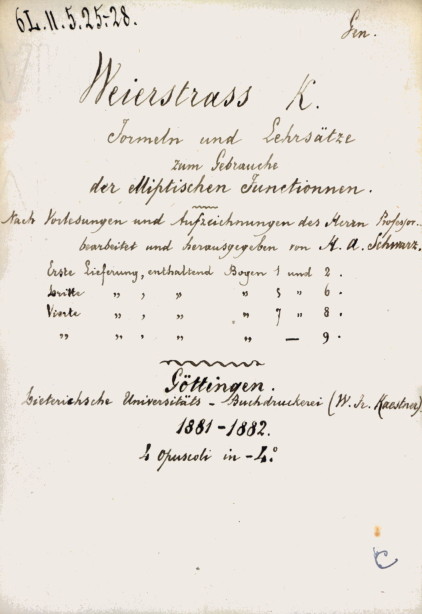 6L.11.5.25-28.
Gen.
Weierstrass K.
Formeln und Lehrsätze
zum Gebrauche
der elliptischen Functionnen.
Nach Vorlesungen und Aufzeichnungen des Herrn Professor..
bearbeitet und herausgegeben von H. A. Schwarz.
Erste Lieferung, enthaltend Bogen 1 und 2.
Dritte „ , „ „ 5 „ 6.
Vierte „ , „ „ 7 „ 8.
„ „ , „ „ — 9.
Göttingen.
Dieterichsche Universitäts - Buchdruckerei (W. Fr. Kaestner)
1881-1882.
4 Opuscoli in -4.°
C